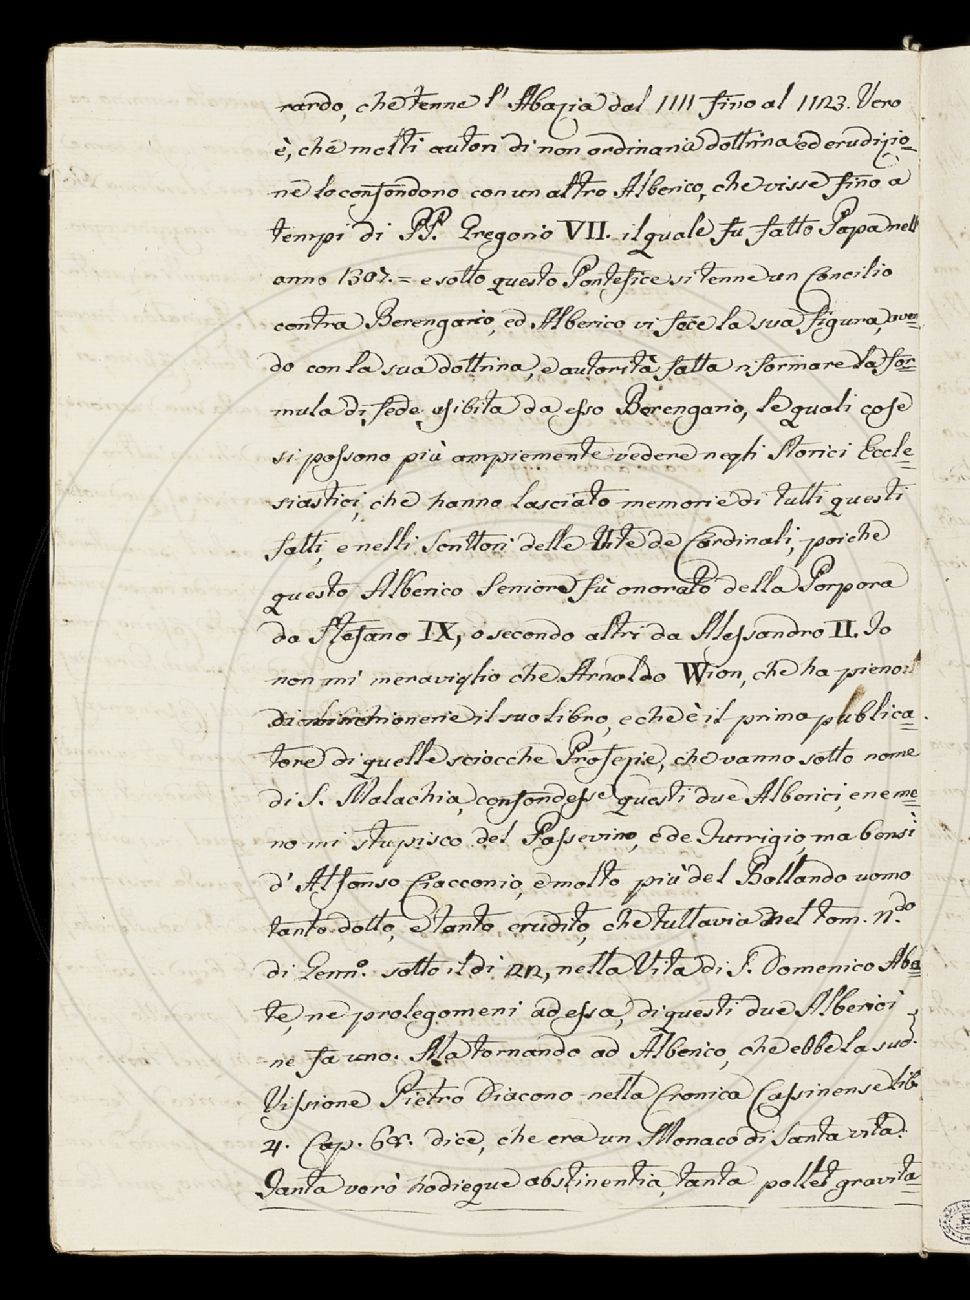 rardo, che tenne l' Abazia dal 1111 fino al 1123. Vero
è, che molti autori di non ordinaria dottrina ed erudizio=
ne lo confondono con un altro Alberico, che visse fino a
tempi di PP. Gregorio VII. il quale fu fatto Papa nell
anno 1307. = e sotto questo Pontefice si tenne un Concilio
contra Berengario, ed Alberico vi fece la sua figura, aven=
do con la sua dottrina, e autorità fatta riformare la for=
mula di fede esibita da esso Berengario, le quali cose
si possono più ampiemente vedere negli Storici Eccle=
siastici, che hanno lasciato memorie di tutti questi
fatti, e nelli Scrittori delle Vite de Cardinali, poiche
questo Alberico Seniore fù onorato della Porpora
da Stefano IX, o secondo altri da Alessandro II. Io
non mi meraviglio che Arnoldo Wion, che ha pieno
di minchionerie il suo libro, e che è il primo publica=
tore di quelle sciocche Profezie, che vanno sotto nome
di S. Malachia, confondesse questi due Alberici, e neme=
no mi stupisco del Possevino, e de Turrigio, ma bensì
d' Alfonso Ciacconio, e molto più del Bollando uomo
tanto dotto, e tanto erudito, che tuttavia nel tom. II.do
di Genn.o sotto il dì 22, nella Vita di S. Domenico Aba=
te, ne prolegomeni ad essa, di questi due Alberici
ne fa uno. Ma tornando ad Alberico, che ebbe la sud.a
Vissione Pietro Diacono nella Cronica Cassinense lib
4. Cap. 68. dice, che era un Monaco di Santa vita.
Tanta verò hodieque abstinentia, tanta pollet gravita=